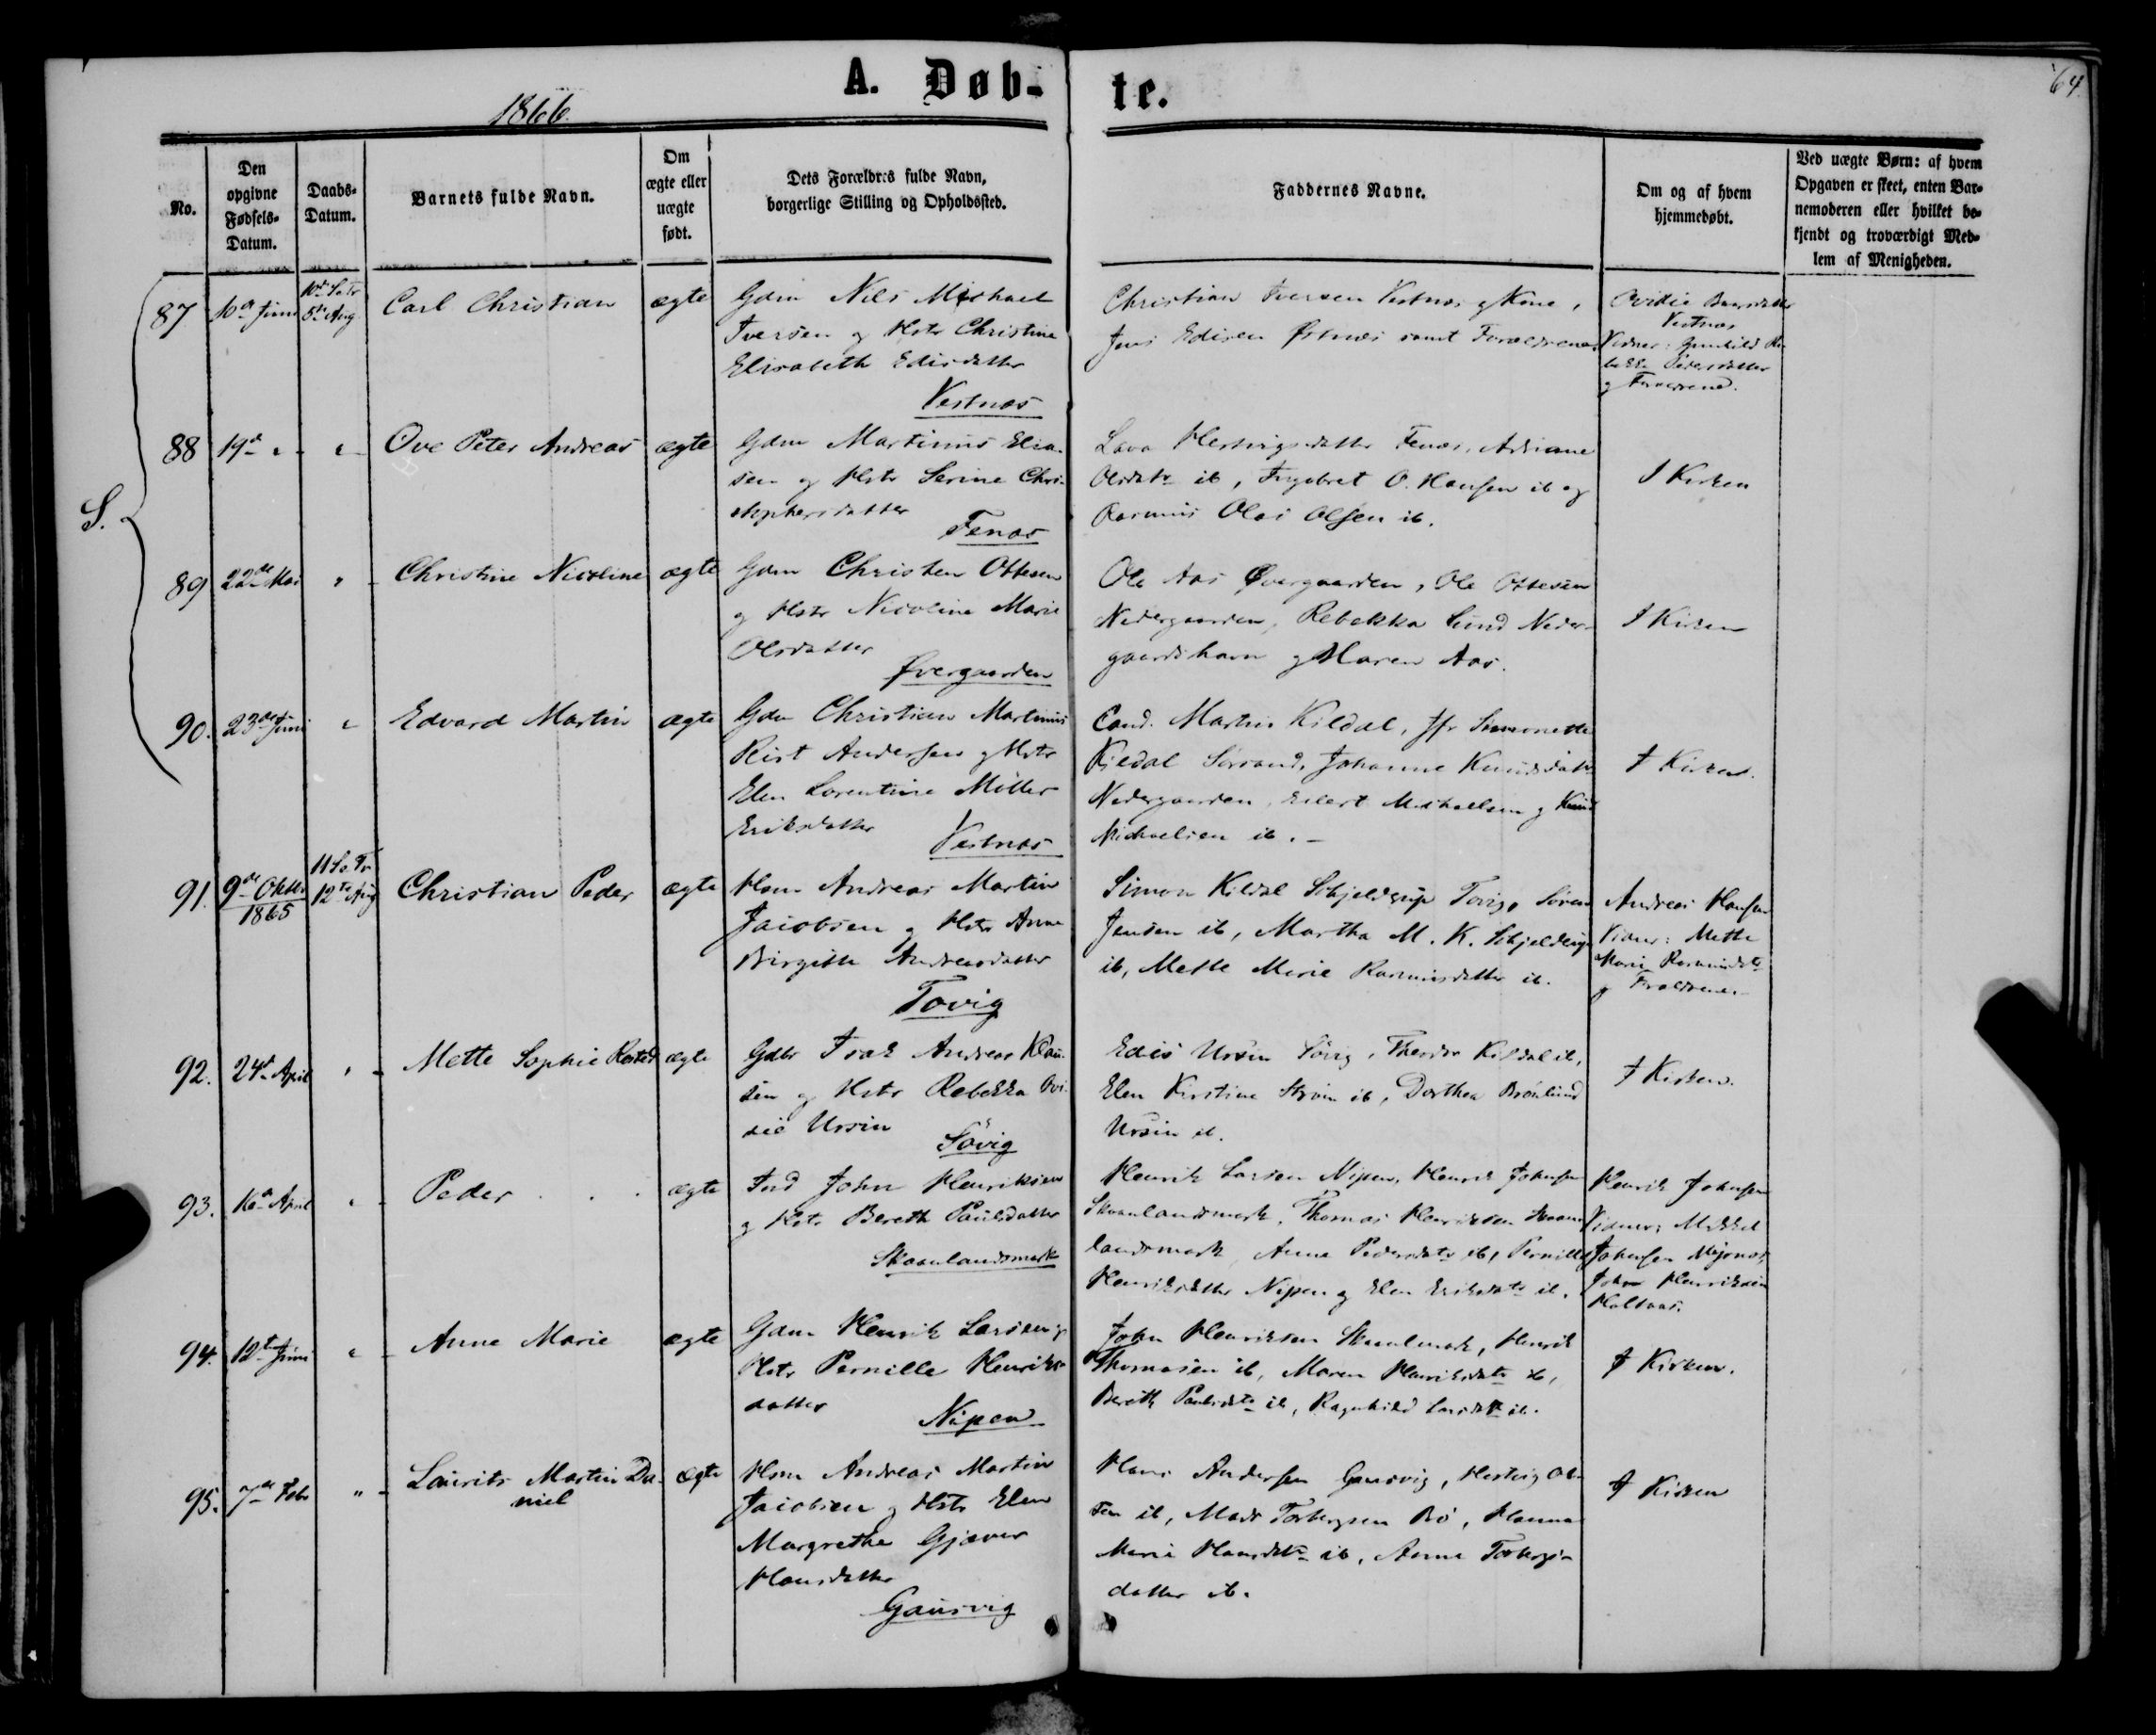 A. Døb-
te.
64.
1866.
No.
Den opgivne Fødsels-Datum.
Daabs-Datum.
Barnets fulde Navn.
Om ægte eller uægte født.
Dets Forældres fulde Navn,
borgerlige Stilling og Opholdssted.
Faddernes Navne.
Om og af hvem
hjemmedøbt.
Ved uægte Børn: af hvem
Opgaven er skeet, enten Bar-
nemoderen eller hvilket be-
kjendt og troværdigt Med-
lem af Menigheden.
S.
87
10d Juni
10d S. Tr
5te Aug.
Carl Christian
ægte
Gdm Nils Michael
Iversen og Hstr Christine
Elisabeth Edisdatter
Vestnæs
Christian Iversen Vestnæs og Kone,
Jens Edisen Østnæs samt Forældrene
Ovidie
Vestnæs
Vidner: Gunhild Re-
bekka Pedersdatter
og Forældrene.
88
19d
Ove Peter Andreas
ægte
Gdm Martinus Elia-
sen og Hstr Serine Chri-
stophersdatter
Fenæs
Lava Hertvigsdatter Fenæs, Adriane
Olsdatr ib, Ingebret O. Hansen ib og
Rasmus Olai Olsen ib.
I Kirken
89
22de Mai
Christine Nicoline
ægte
Gdm Christen Ottesen
og Hstr Nicoline Marie
Olsdatter
Øvergaarden
Ole Aas Øvergaarden, Ole Ottesen
Nedergaarden, Rebekka Lund Neder-
gaardshavn og Maren Aas.
I Kirken
90.
23de Juni
Edvard Martin
ægte
Gdm Christian Martinus
Rist Andersen og Hstr
Elen Lorentine Möller
Eriksdatter
Vestnæs
Cand. Martin Kildal, Jfr Simonette
Kildal Sörsand, Johanne Knudsdatr
Nedergaarden, Eilert Michaelsen og Knud
Michaelsen ib.
I Kirken.
91.
9de Oktbr
1865
11 S. Tr
12te Aug
Christian Peder
ægte
Hsm Andreas Martin
Jacobsen og Hstr Anne
Birgitte Andreasdatter
Tovig
Simon Kildal Schjelderup Tovig, Sören
Jensen ib, Martha M. K. Schjelderup
ib, Mette Marie Rasmusdatter ib.
Andreas Hansen
Vidner: Mette
Marie Rasmusdtr
og Forældrene.
92.
24d April
Mette Sophie
ægte
Gdbr Isak Andreas Klau-
sen og Hstr Rebekka Ovi-
die Ursin
Sövig
Edis Ursin Sövig, Theodor Kildal ib,
Elen Kirstine Ström ib, Dorthea Brönlund
Ursin ib.
I Kirken.
93.
16d April
Peder
ægte
Ind John Henriksen
og Hstr Bereth Paulsdatter
Skaanlandsmark
Henrik Larsen Nipen, Henrik Johnsen
Skaanlandsmark, Thomas Henriksen Skaan-
landsmark, Anne Pedersdatr ib, Pernille
Henriksdatter Nipen og Elen Eriksdatr ib.
Henrik Johnsen
Vidner: Mikkel
Johnsen
John Henriksen
94.
12te Juni
Anne Marie
ægte
Gdm Henrik Larsen og
Hstr Pernille Henriks-
datter
Nipen
John Henriksen Skaanlmark, Henrik
Thomasen ib, Maren Henriksdatr ib,
Bereth Paulsdtr ib, Ragnhild Larsdtr ib.
I Kirken.
95.
7de Febr
Laurits Martin Da-
niel
ægte
Hsm Andreas Martin
Jacobsen og Hstr Elen
Margrethe Gjæver
Hansdatter
Gausvig
Hans Andersen Gausvig, Hertvig Ol-
sen ib, Mads Torbergsen Bö, Hanna
Marie Hansdtr ib, Anne Torbergs-
datter ib.
I Kirken